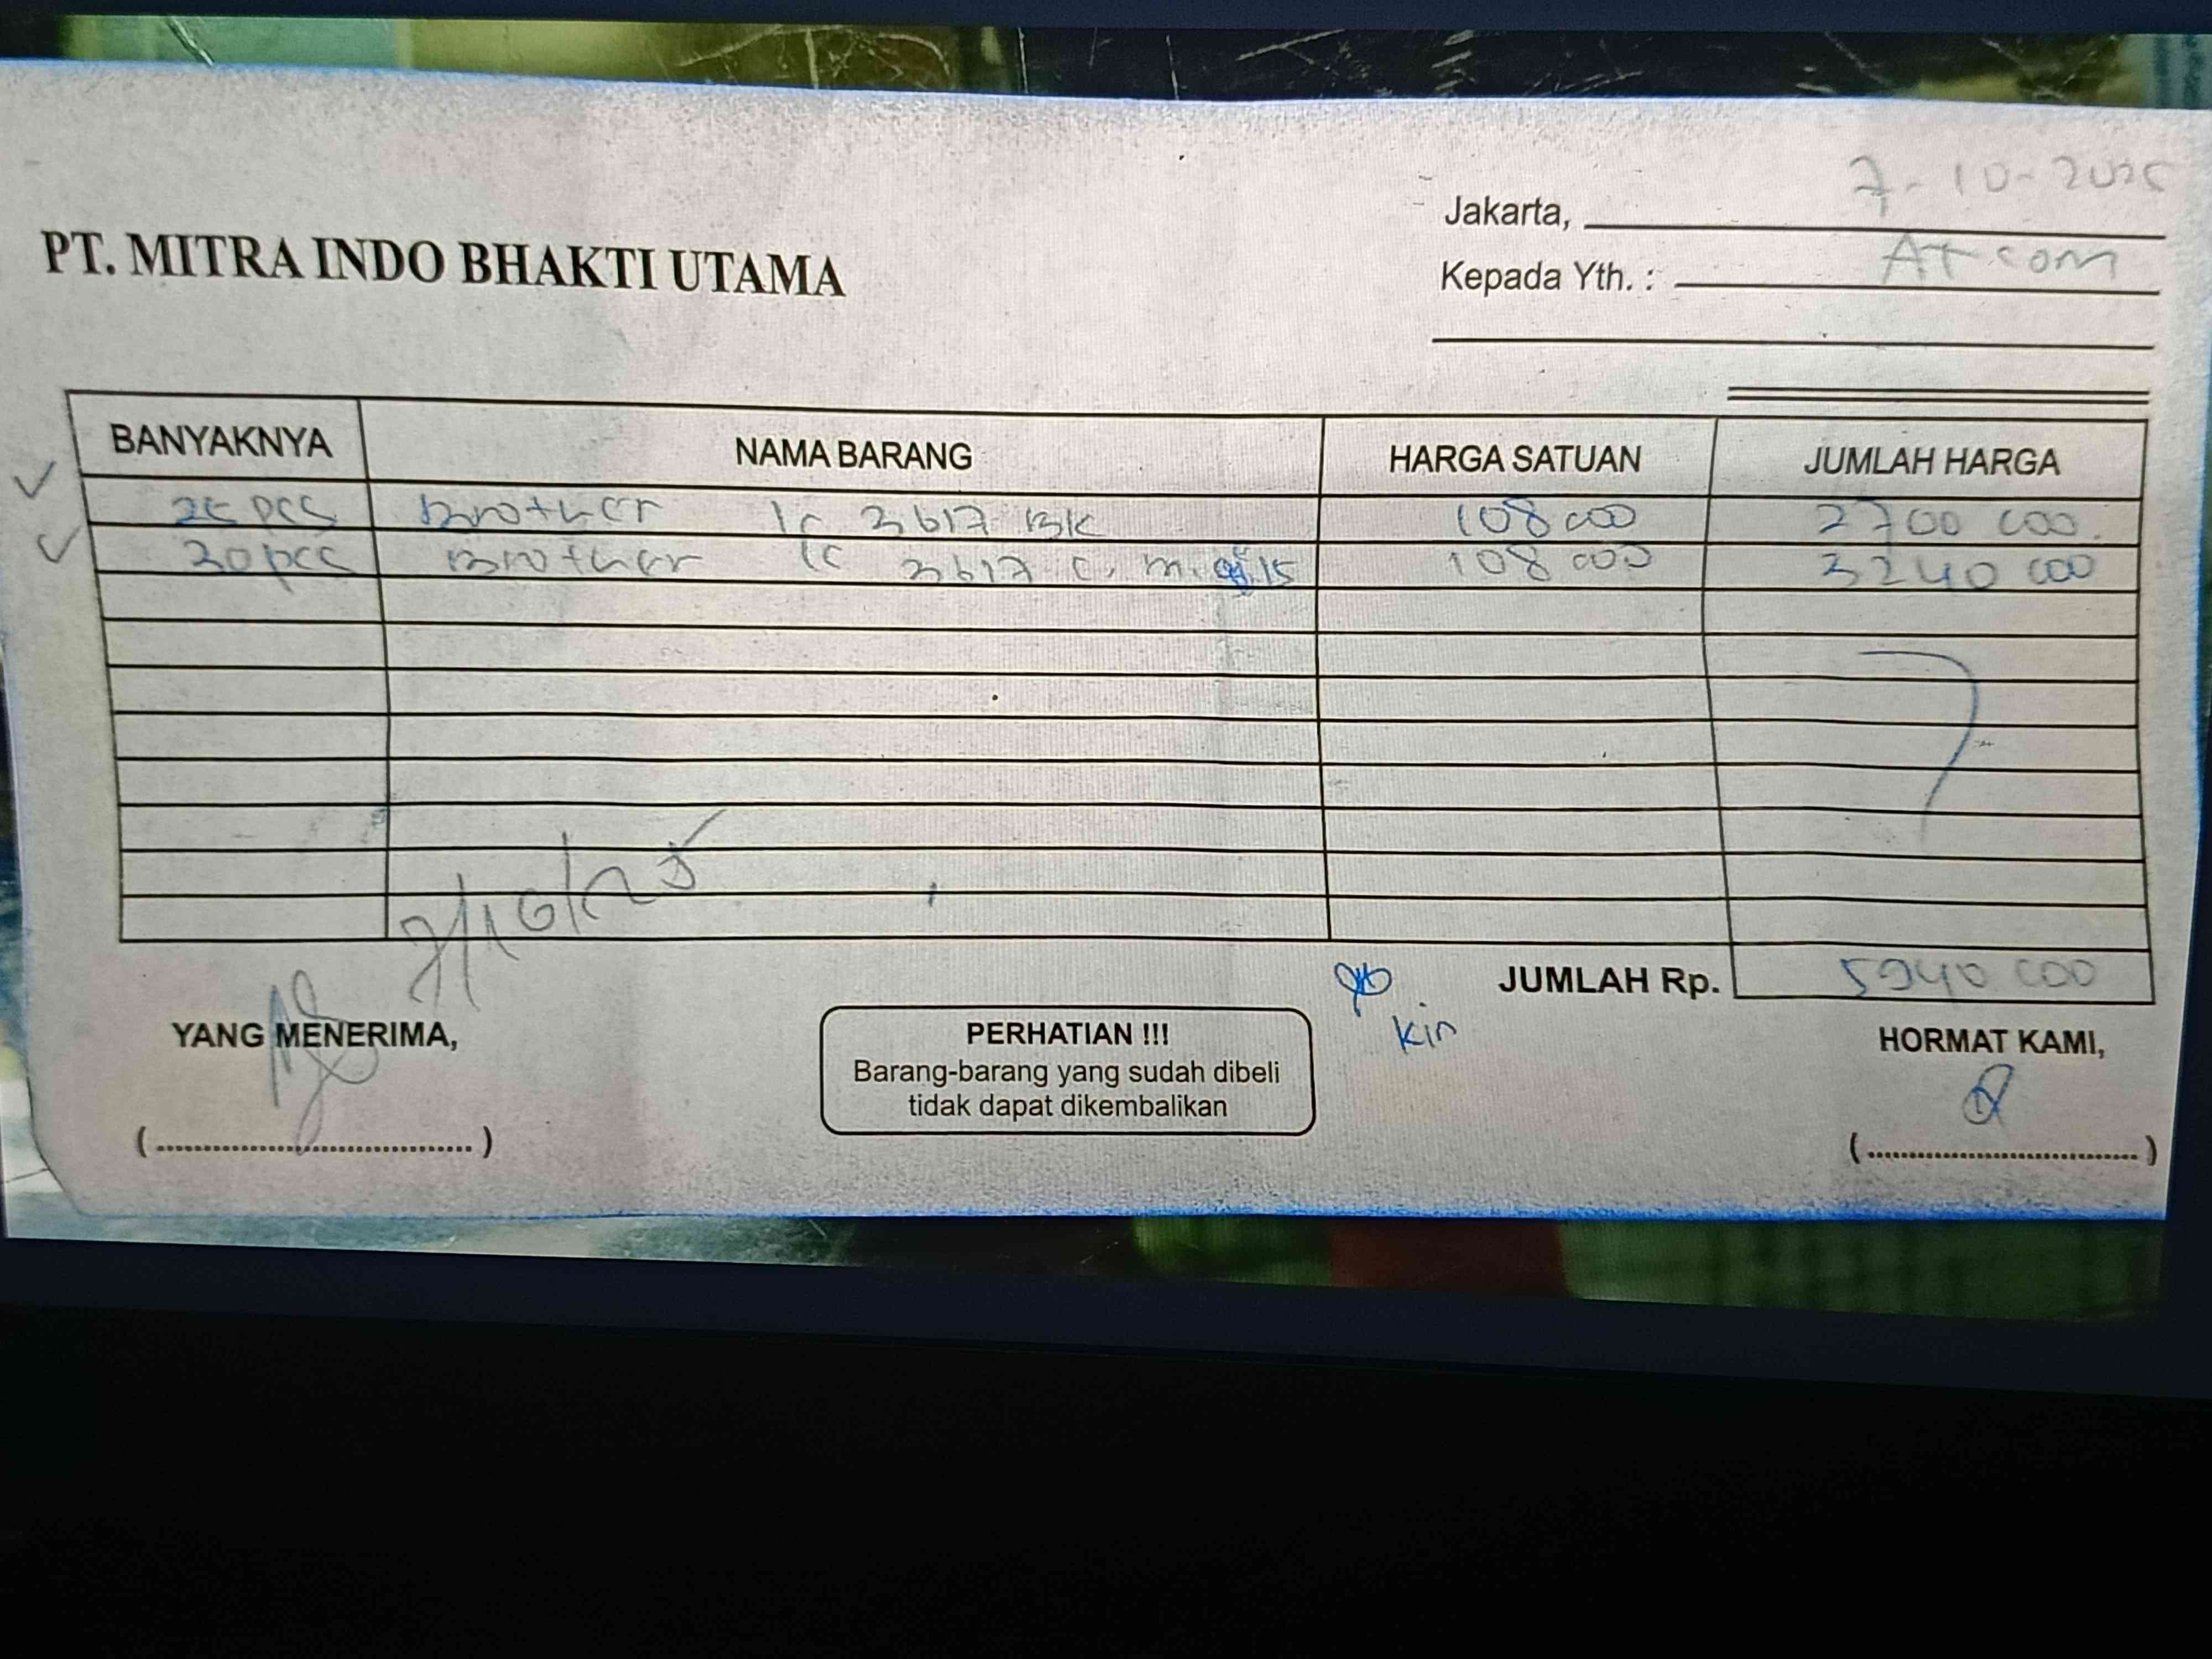 7-10-2025
Jakarta,
PT. MITRA INDO BHAKTI UTAMA
Kepada Yth. : AT com
BANYAKNYA NAMA BARANG HARGA SATUAN JUMLAH HARGA
25 pcs Brother lc 3617 BK 108 000 2700 000
30 pcs Brother lc 3617 C. M. 15 108 000 3240 000
7/10/25
JUMLAH Rp. 5940 000
kin
YANG MENERIMA, PERHATIAN !!! HORMAT KAMI,
Barang-barang yang sudah dibeli
tidak dapat dikembalikan
(..............................) (..............................)